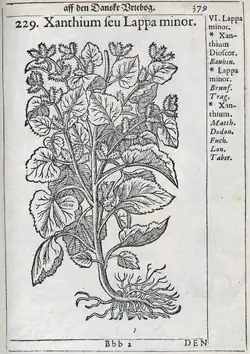 aff den Danske Urtebog. 379
229. Xanthium seu Lappa minor.
VI. Lappa
minor.
* Xan-
thium
Dioscor.
Bauhin.
* Lappa
minor.
Brunf.
Trag.
* Xan-
thium.
Matth.
Dodon.
Fuch.
Lon.
Taber.
1
Bbb 2 DEN